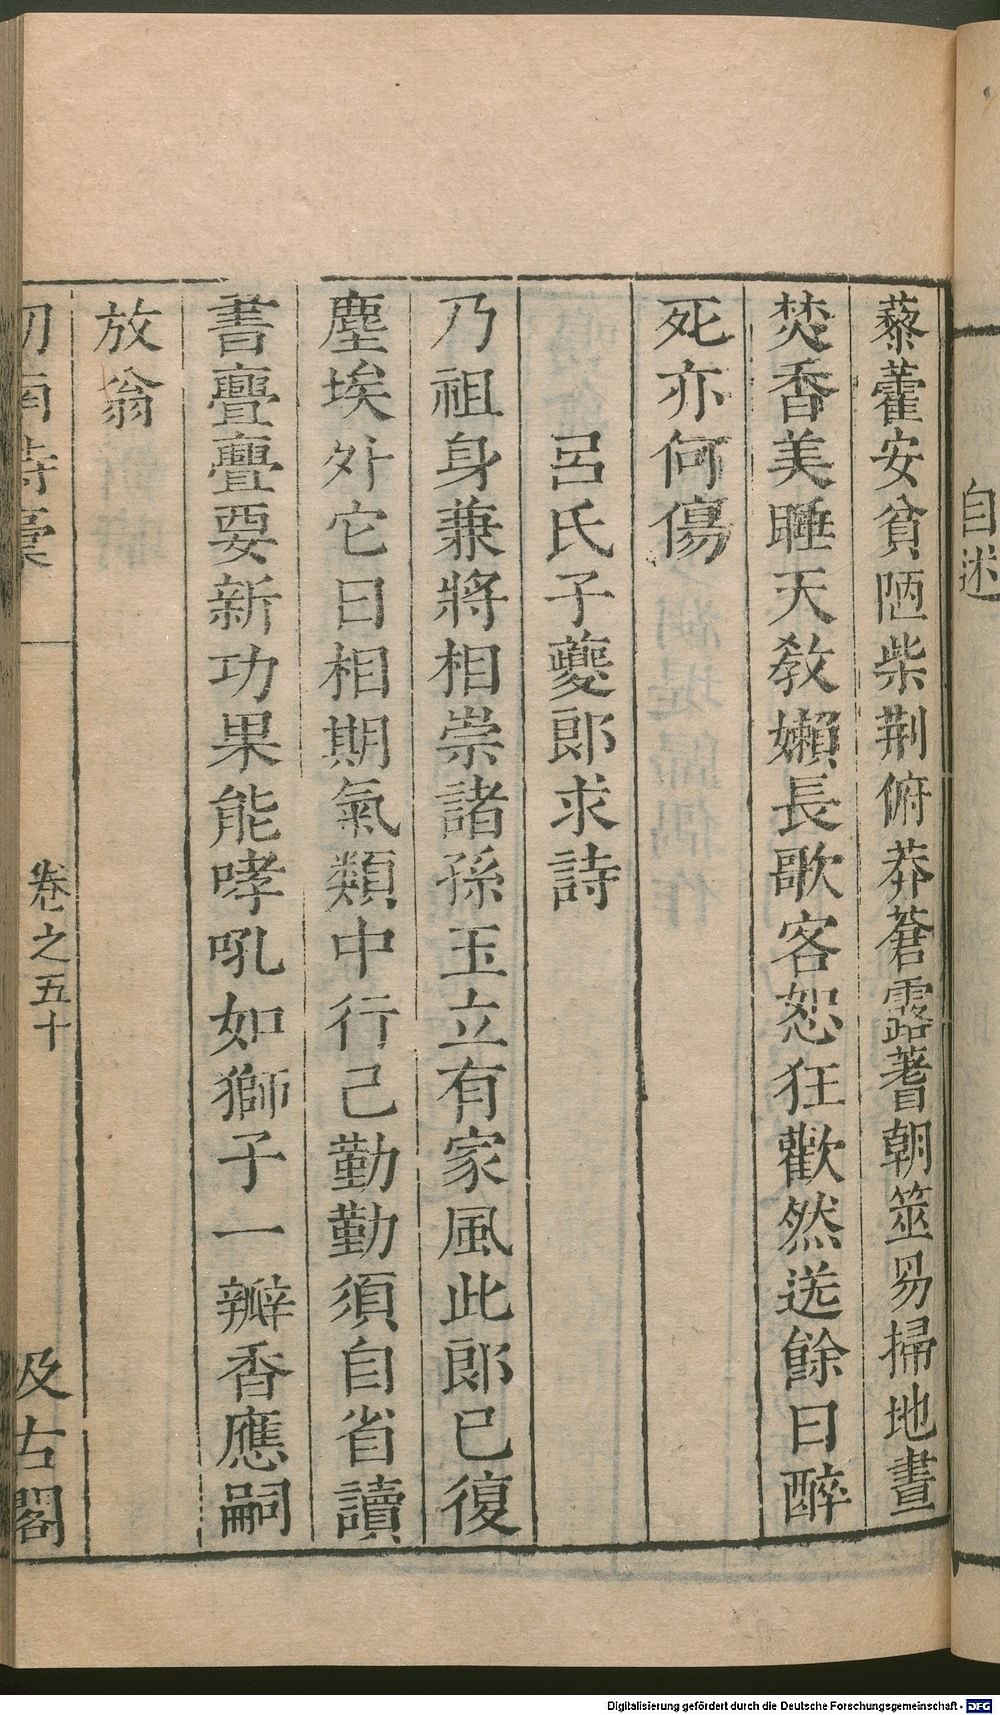 自述
藜藿安貧陋柴荆俯莽蒼露蓍朝筮易掃地晝
焚香美睡天教嬾長歌客恕狂歡然送餘日醉
死亦何傷
呂氏子夔郎求詩
乃祖身兼將相崇諸孫玉立有家風此郎已復
塵埃外它日相期氣類中行己勤勤須自省讀
書亹亹要新功果能哮吼如獅子一瓣香應嗣
放翁
劒南詩稾
卷之五十
汲古閣
Digitalisierung gefördert durch die Deutsche Forschungsgemeinschaft - DFG